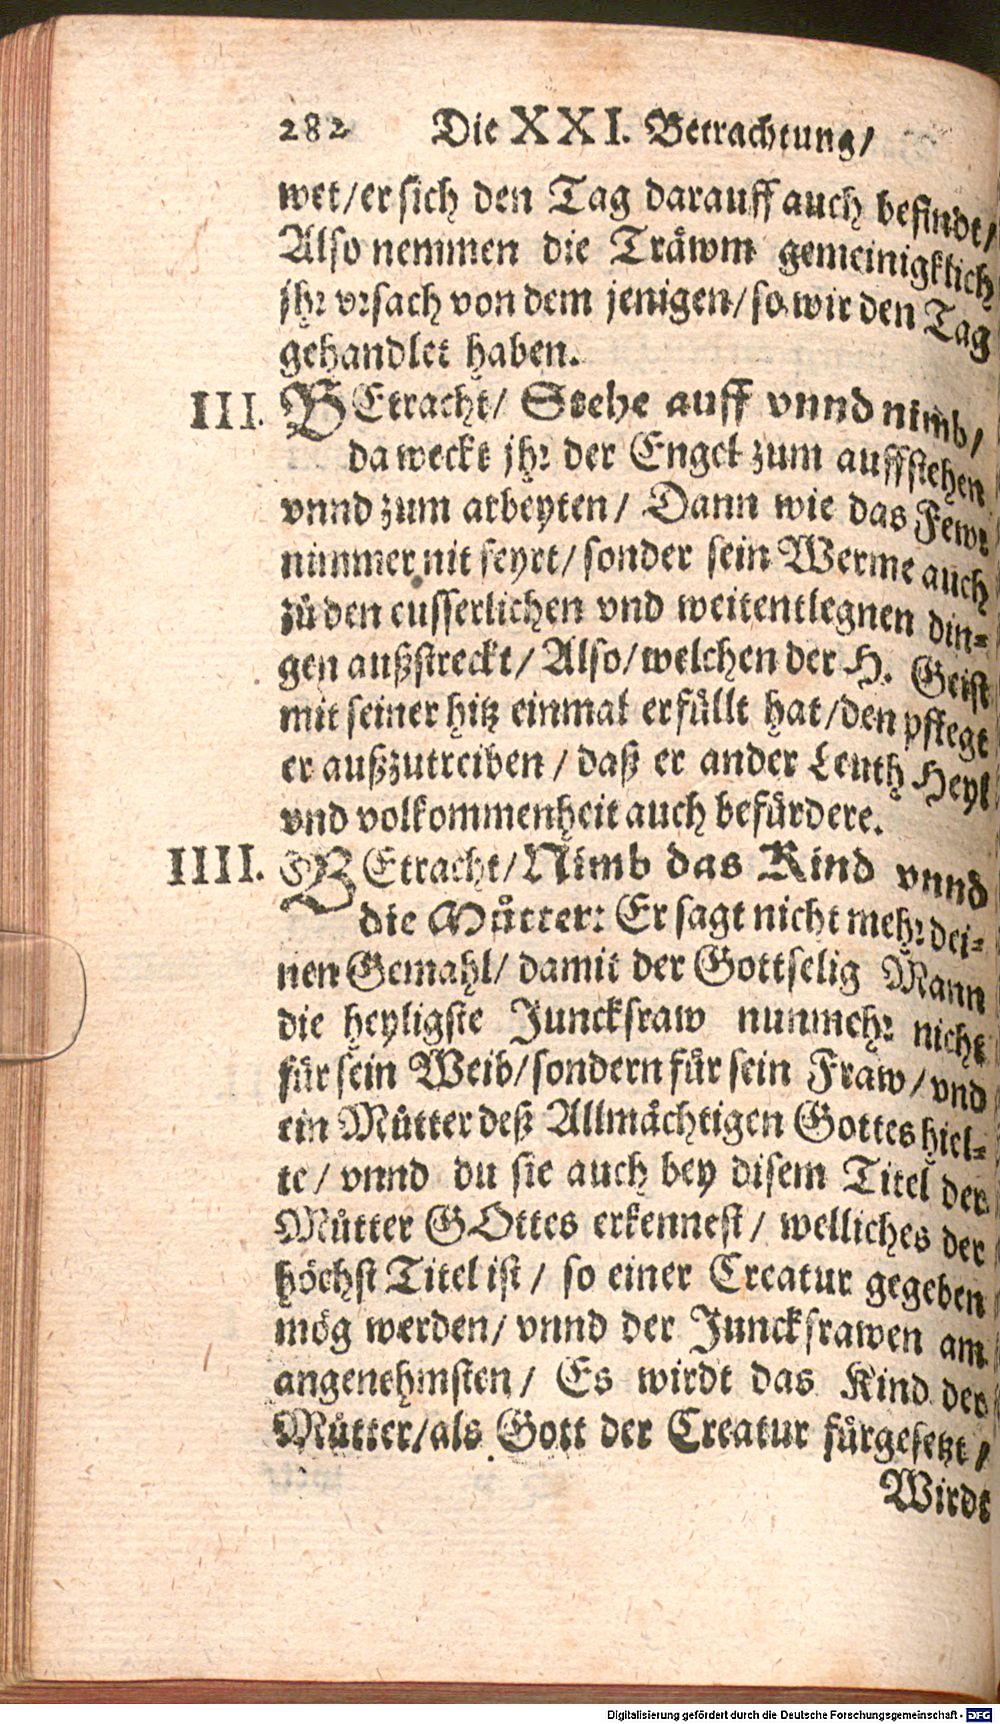 282 Die XXI. Betrachtung/
wet/er sich den Tag darauff auch befindt/
Also nemmen die Träwm gemeinigklich
jhr vrsach von dem jenigen/so wir den Tag
gehandlet haben.
III. BEtracht/ Stehe auff vnnd nimb/
da weckt jhr der Engel zum auffstehen
vnnd zum arbeyten/ Dann wie das Fewr
nimmer nit feyrt/sonder sein Werme auch
zů den eusserlichen vnd weitentlegnen din-
gen außstreckt/ Also/welchen der H. Geist
mit seiner hitz einmal erfüllt hat/den pflegt
er außzutreiben/ daß er ander Leuth Heyl
vnd volkommenheit auch befürdere.
IIII. BEtracht/Nimb das Kind vnnd
die Můtter: Er sagt nicht mehr dei-
nen Gemahl/ damit der Gottselig Mann
die heyligste Junckfraw nunmehr nicht
für sein Weib/sondern für sein Fraw/vnd
ein Můtter deß Allmächtigen Gottes hiel-
te/ vnnd du sie auch bey disem Titel der
Můtter GOttes erkennest/ welliches der
höchst Titel ist/ so einer Creatur gegeben
mög werden/ vnnd der Junckfrawen am
angenehmsten/ Es wirdt das Kind der
Můtter/als Gott der Creatur fürgesetzt/
Wirdt
Digitalisierung gefördert durch die Deutsche Forschungsgemeinschaft - DFG